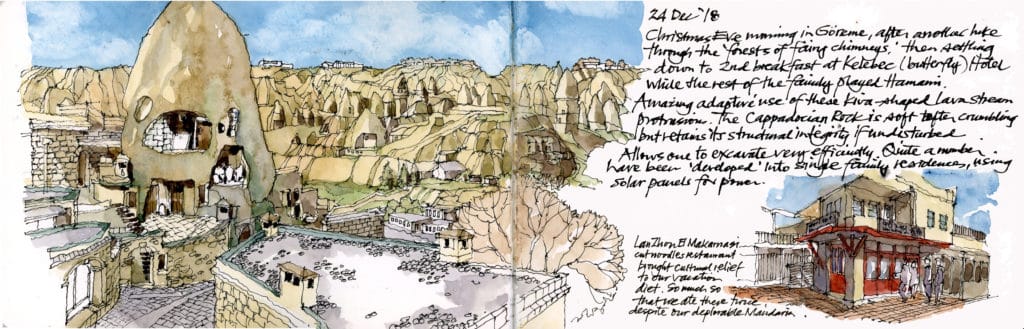 24 Dec '18
Christmas Eve morning in Göreme, after another hike
through the 'forests of fairy chimneys,' then settling
down to 2nd breakfast at Kelebec (butterfly) Hotel
while the rest of the family played Hamami.
Amazing adaptive use of these kiva-shaped lava stream
protrusion. The Cappadocian Rock is soft tufter, crumbling
but retains its structural integrity if undisturbed.
Allows one to excavate very efficiently. Quite a number
have been 'developed' into single family residences, using
solar panels for power.
LanZhou El Makarnasi
cut noodles restaurant
brought cultural relief
to our vacation
diet. So much so
that we ate there twice,
despite our deplorable Mandarin.